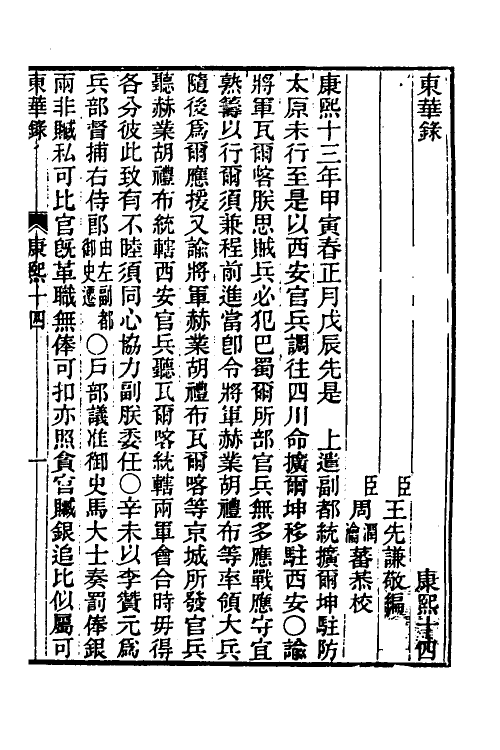 東華錄　康熙十四
臣王先謙敬編
臣周潤蕃周瀹蕃恭校
康熙十三年甲寅春正月戊辰先是　上遣副都統擴爾坤駐防
太原未行至是以西安官兵調往四川命擴爾坤移駐西安〇諭
將軍瓦爾喀朕思賊兵必犯巴蜀爾所部官兵無多應戰應守宜
熟籌以行爾須兼程前進當卽令將軍赫業胡禮布等率領大兵
隨後爲爾應援又諭將軍赫業胡禮布瓦爾喀等京城所發官兵
聽赫業胡禮布統轄西安官兵聽瓦爾喀統轄兩軍會合時毋得
各分彼此致有不睦須同心協力副朕委任〇辛未以李贊元爲
兵部督捕右侍郎由左副都御史遷〇戸部議准御史馬大士奏罰俸銀
兩非贓私可比官旣革職無俸可扣亦照貪官贓銀追比似屬可
東華錄　康熙十四　一